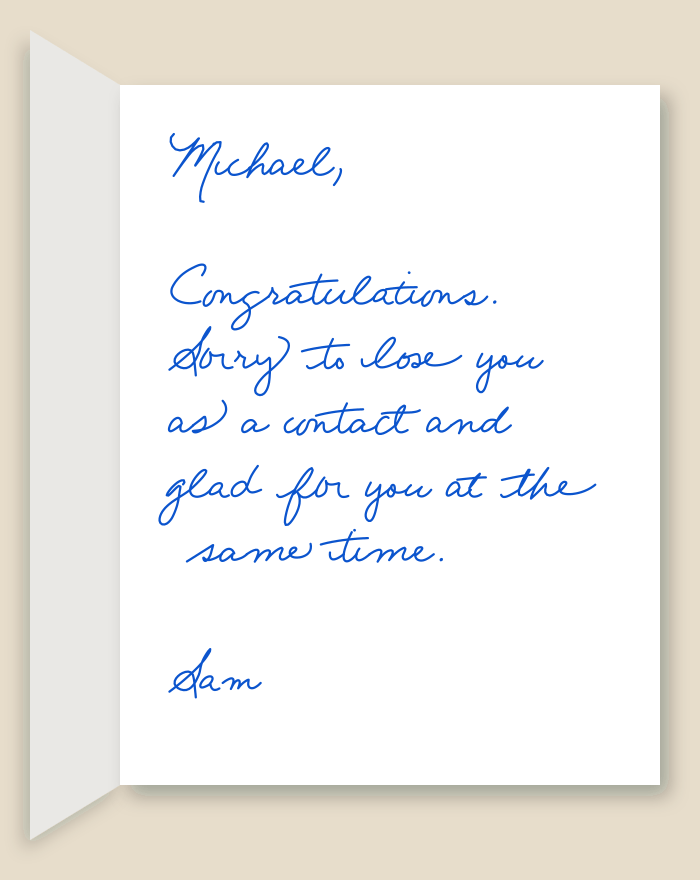 Michael,
Congratulations.
Sorry to lose you
as a contact and
glad for you at the
same time.
Sam